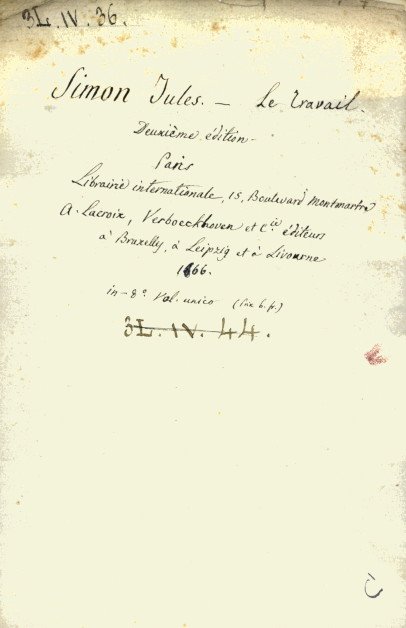 3L. IV. 36.
Simon Jules. — Le Travail.
Deuxième édition -
Paris
Librairie internationale, 15, Boulevard Montmartre
A. Lacroix, Verboeckhoven et Cie. éditeurs
à Bruxelly, à Leipzig et à Livourne
1866.
in-8º Vol. unico
3L. IV. 44.